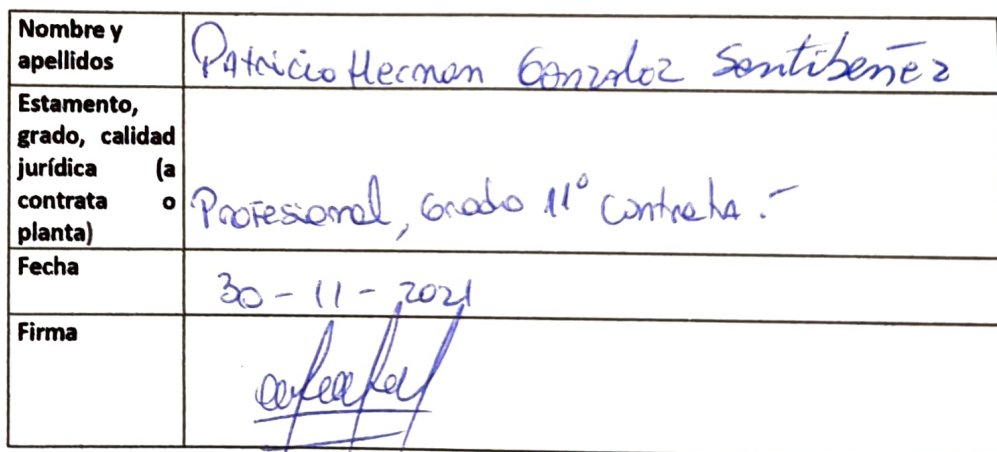 Nombre y
apellidos
Patricio Hernan Gonzalez Santibañez
Estamento,
grado, calidad
jurídica (a
contrata o
planta)
Profesional, Grado 11° contrata.-
Fecha
30-11-2021
Firma